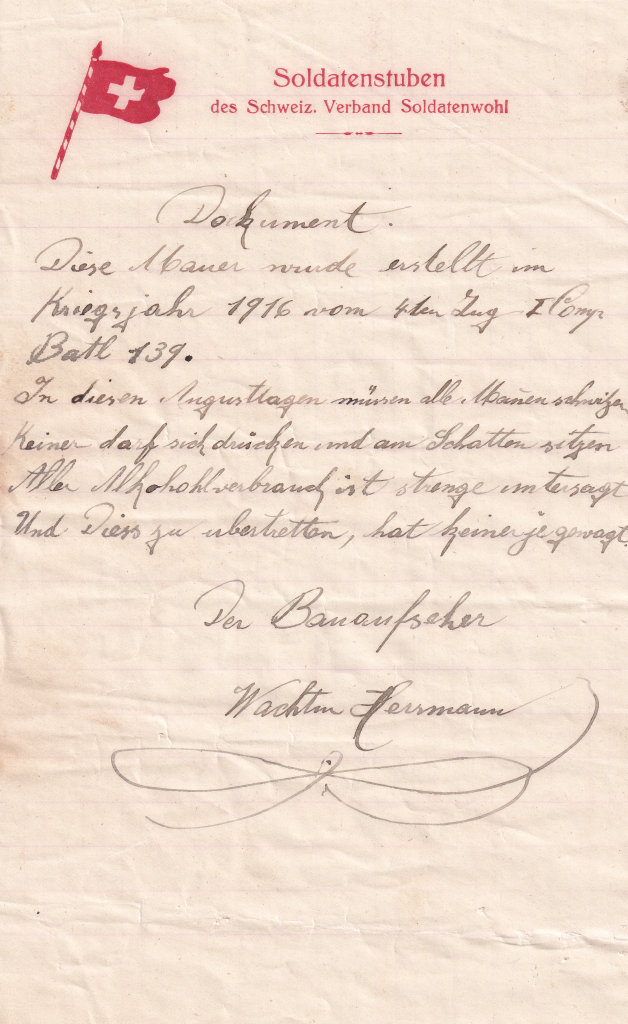 Soldatenstuben
des Schweiz. Verband Soldatenwohl
Dokument.
Diese Mauer wurde erstellt im
Kriegsjahr 1916 vom 4ten Zug I Comp
Batl 139.
In diesen Augusttagen müssen alle Mañen schwizen
Keiner darf sich drücken und am Schatten sitzen
Aller Alkohohlverbrauch ist strenge untersagt
Und Diess zu ubertretten, hat keiner je gewagt.
Der Bauaufseher
Wachtm Herrmann